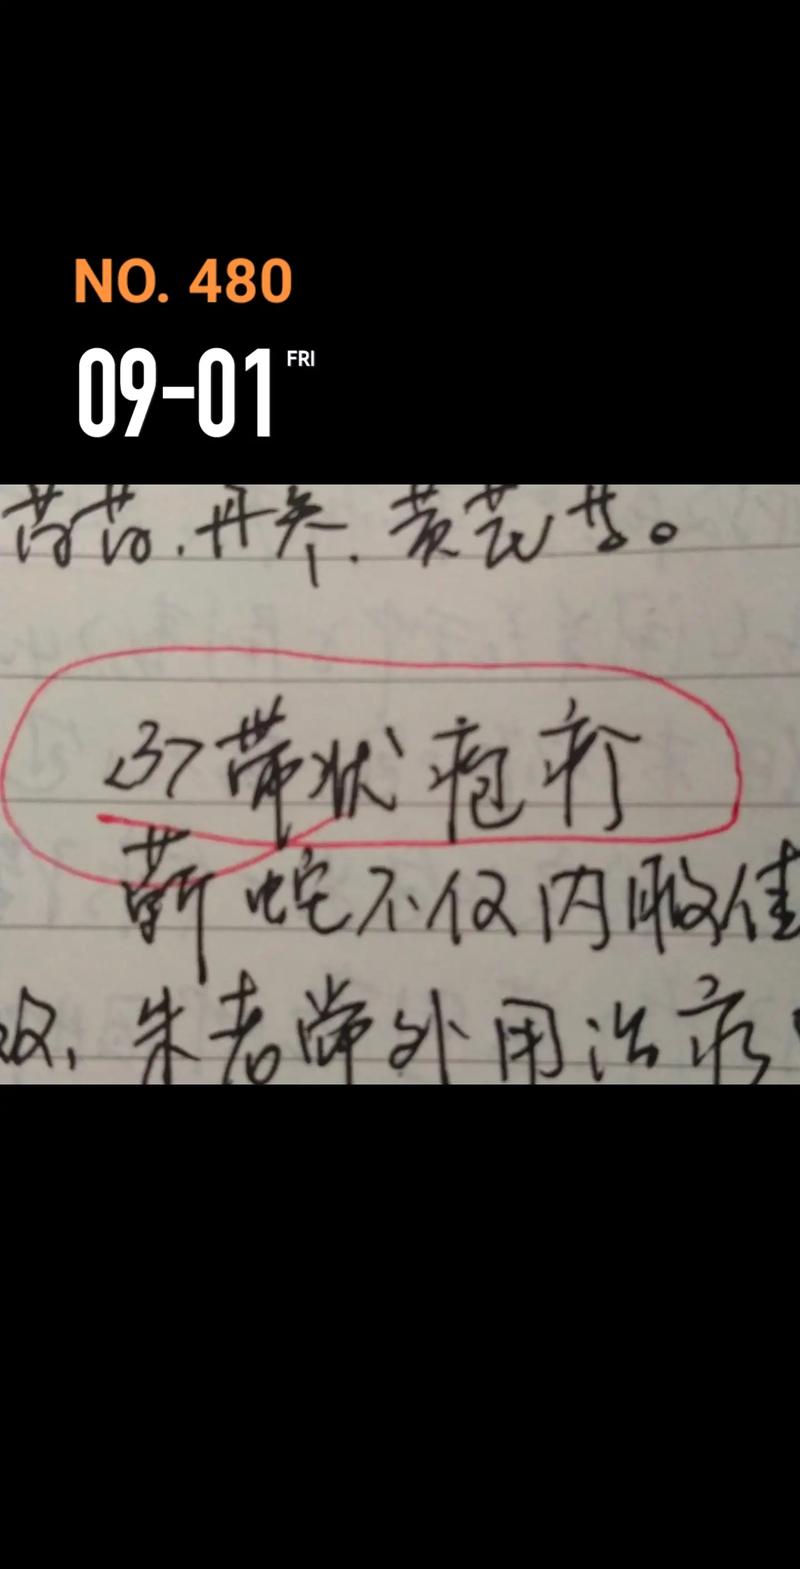 NO. 480
09-01 FRI
芍药、丹参、黄芪等。
37 带状疱疹
蕲蛇不仅内服佳
效，朱老常外用治疗